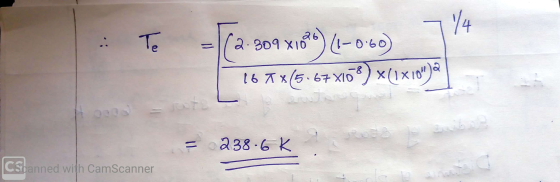 ∴ Te = [(2.309 x10^26) (1-0.60) / 16 π x (5.67x10^-8) x (1x10^11)^2]^1/4
= 238.6 K
CS Scanned with CamScanner